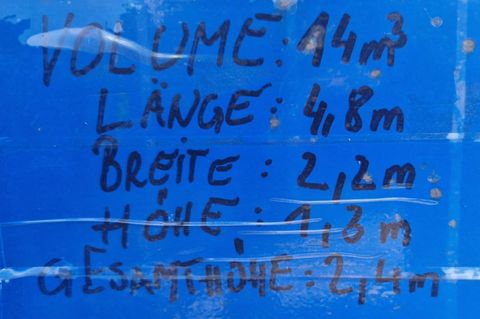 VOLUME: 14m³
LÄNGE: 4,8m
BREITE: 2,2m
HÖHE: 1,3m
GESAMTHÖHE: 2,4m